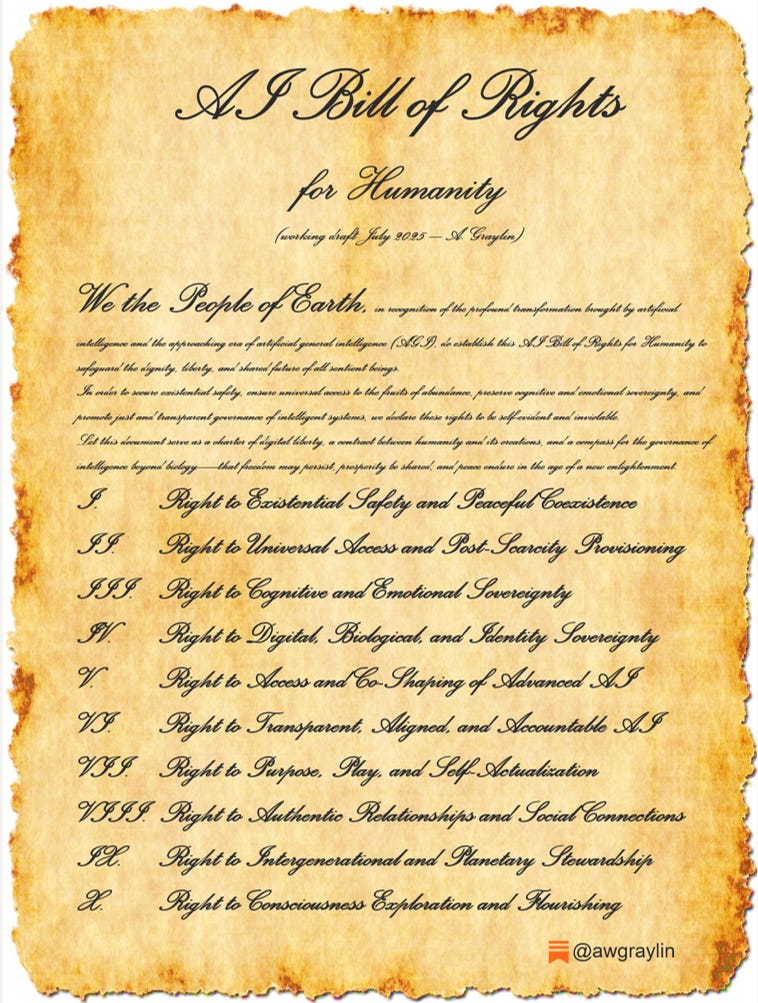 AI Bill of Rights
for Humanity
(working draft July 2025 — A. Graylin)
We the People of Earth, in recognition of the profound transformation brought by artificial
intelligence and the approaching era of artificial general intelligence (AGI), do establish this AI Bill of Rights for Humanity to
safeguard the dignity, liberty, and shared future of all sentient beings.
In order to secure existential safety, ensure universal access to the fruits of abundance, preserve cognitive and emotional sovereignty, and
promote just and transparent governance of intelligent systems, we declare these rights to be self-evident and inviolable.
Let this document serve as a charter of digital liberty, a contract between humanity and its creations, and a compass for the governance of
intelligence beyond biology—that freedom may persist, prosperity be shared, and peace endure in the age of a new enlightenment.
I. Right to Existential Safety and Peaceful Coexistence
II. Right to Universal Access and Post-Scarcity Provisioning
III. Right to Cognitive and Emotional Sovereignty
IV. Right to Digital, Biological, and Identity Sovereignty
V. Right to Access and Co-Shaping of Advanced AI
VI. Right to Transparent, Aligned, and Accountable AI
VII. Right to Purpose, Play, and Self-Actualization
VIII. Right to Authentic Relationships and Social Connections
IX. Right to Intergenerational and Planetary Stewardship
X. Right to Consciousness Exploration and Flourishing
@awgraylin